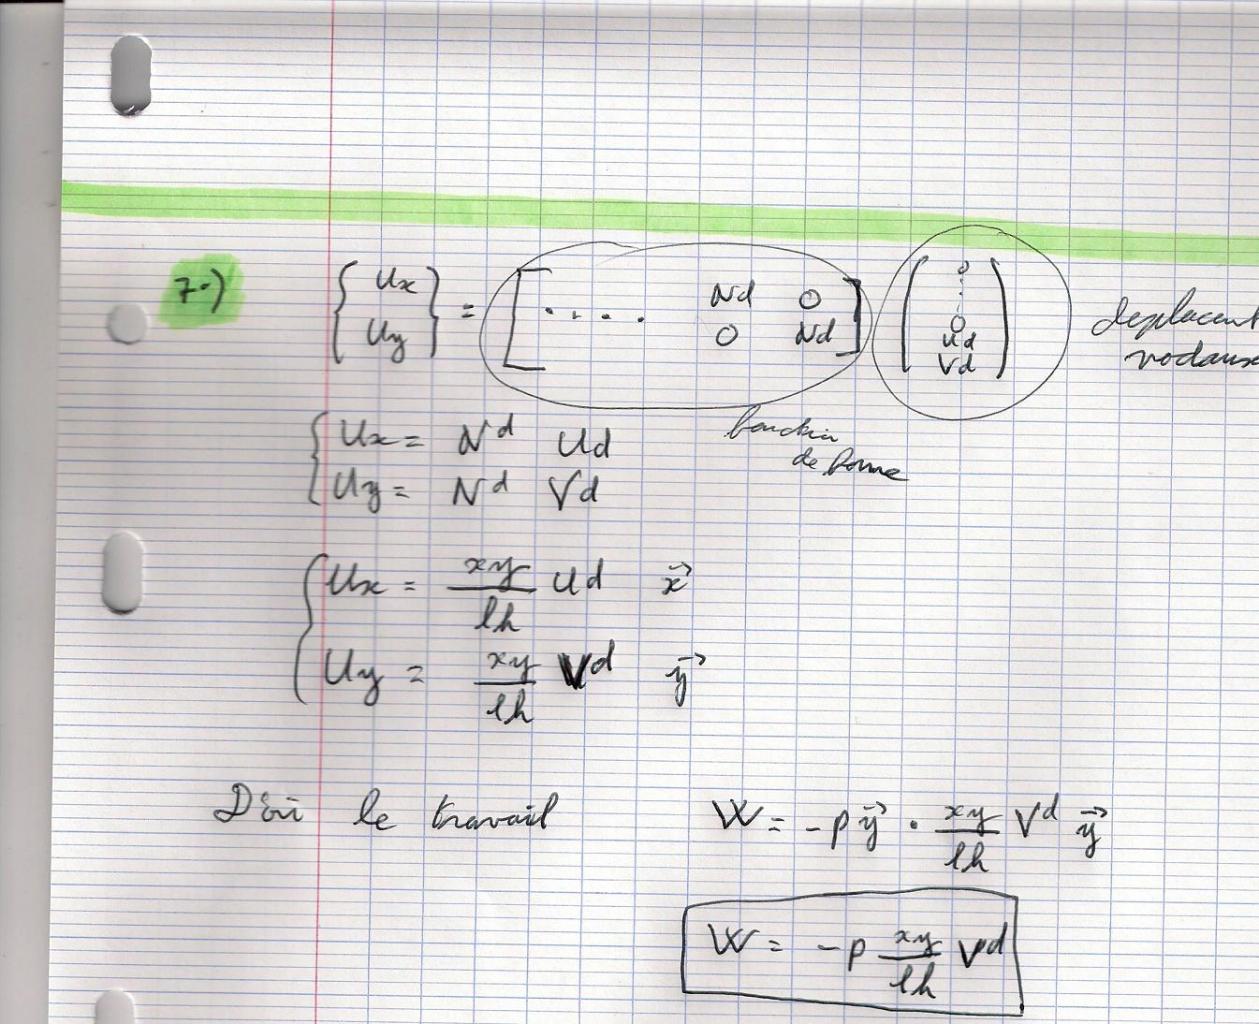 7.) { Ux Uy } = [ . . . . Nd 0 0 Nd ] ( 0 ⋮ 0 Ud Vd ) deplacent nodaux
fonction
de forme
Ux = N^d Ud
Uy = N^d Vd
Ux = xy/lh Ud x⃗
Uy = xy/lh V^d y⃗
D'où le travail W = -p y⃗ · xy/lh V^d y⃗
W = -p xy/lh V^d